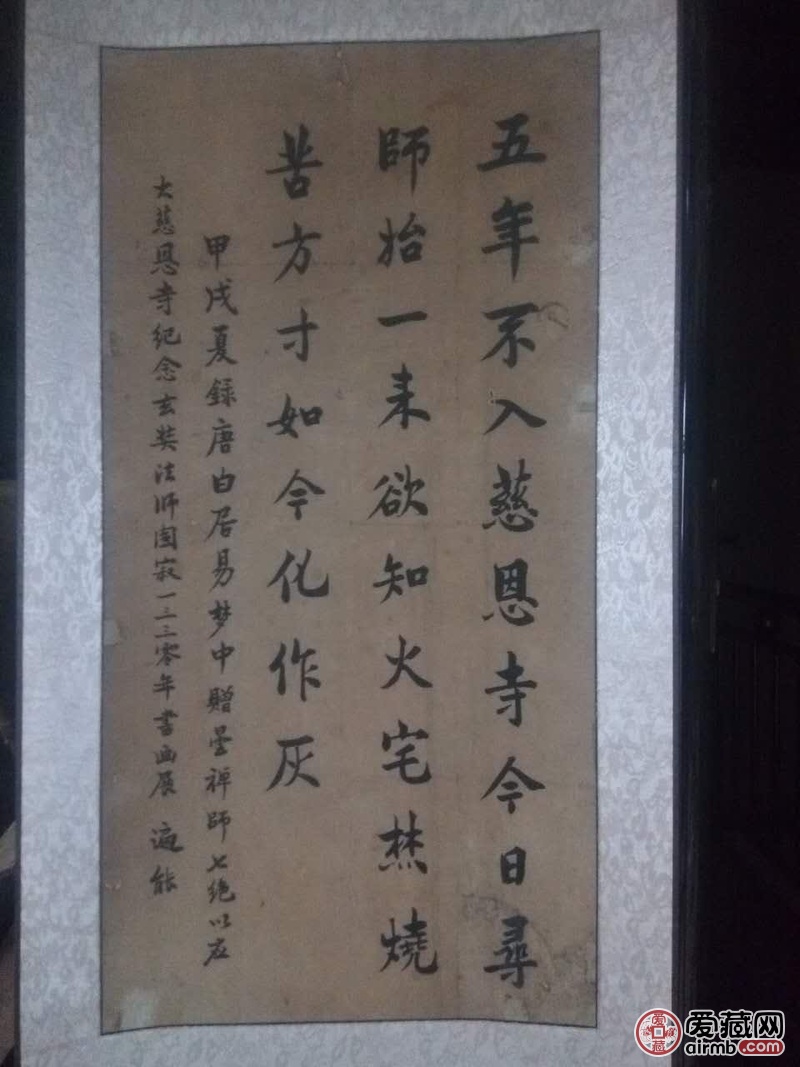 五年不入慈恩寺今日尋
師始一来欲知火宅焚燒
苦方寸如今化作灰
甲戌夏録唐白居易梦中贈曇禅師七绝以应
大慈恩寺纪念玄奘法师圆寂一三三零年书画展 遍能
爱藏网
airmb.com